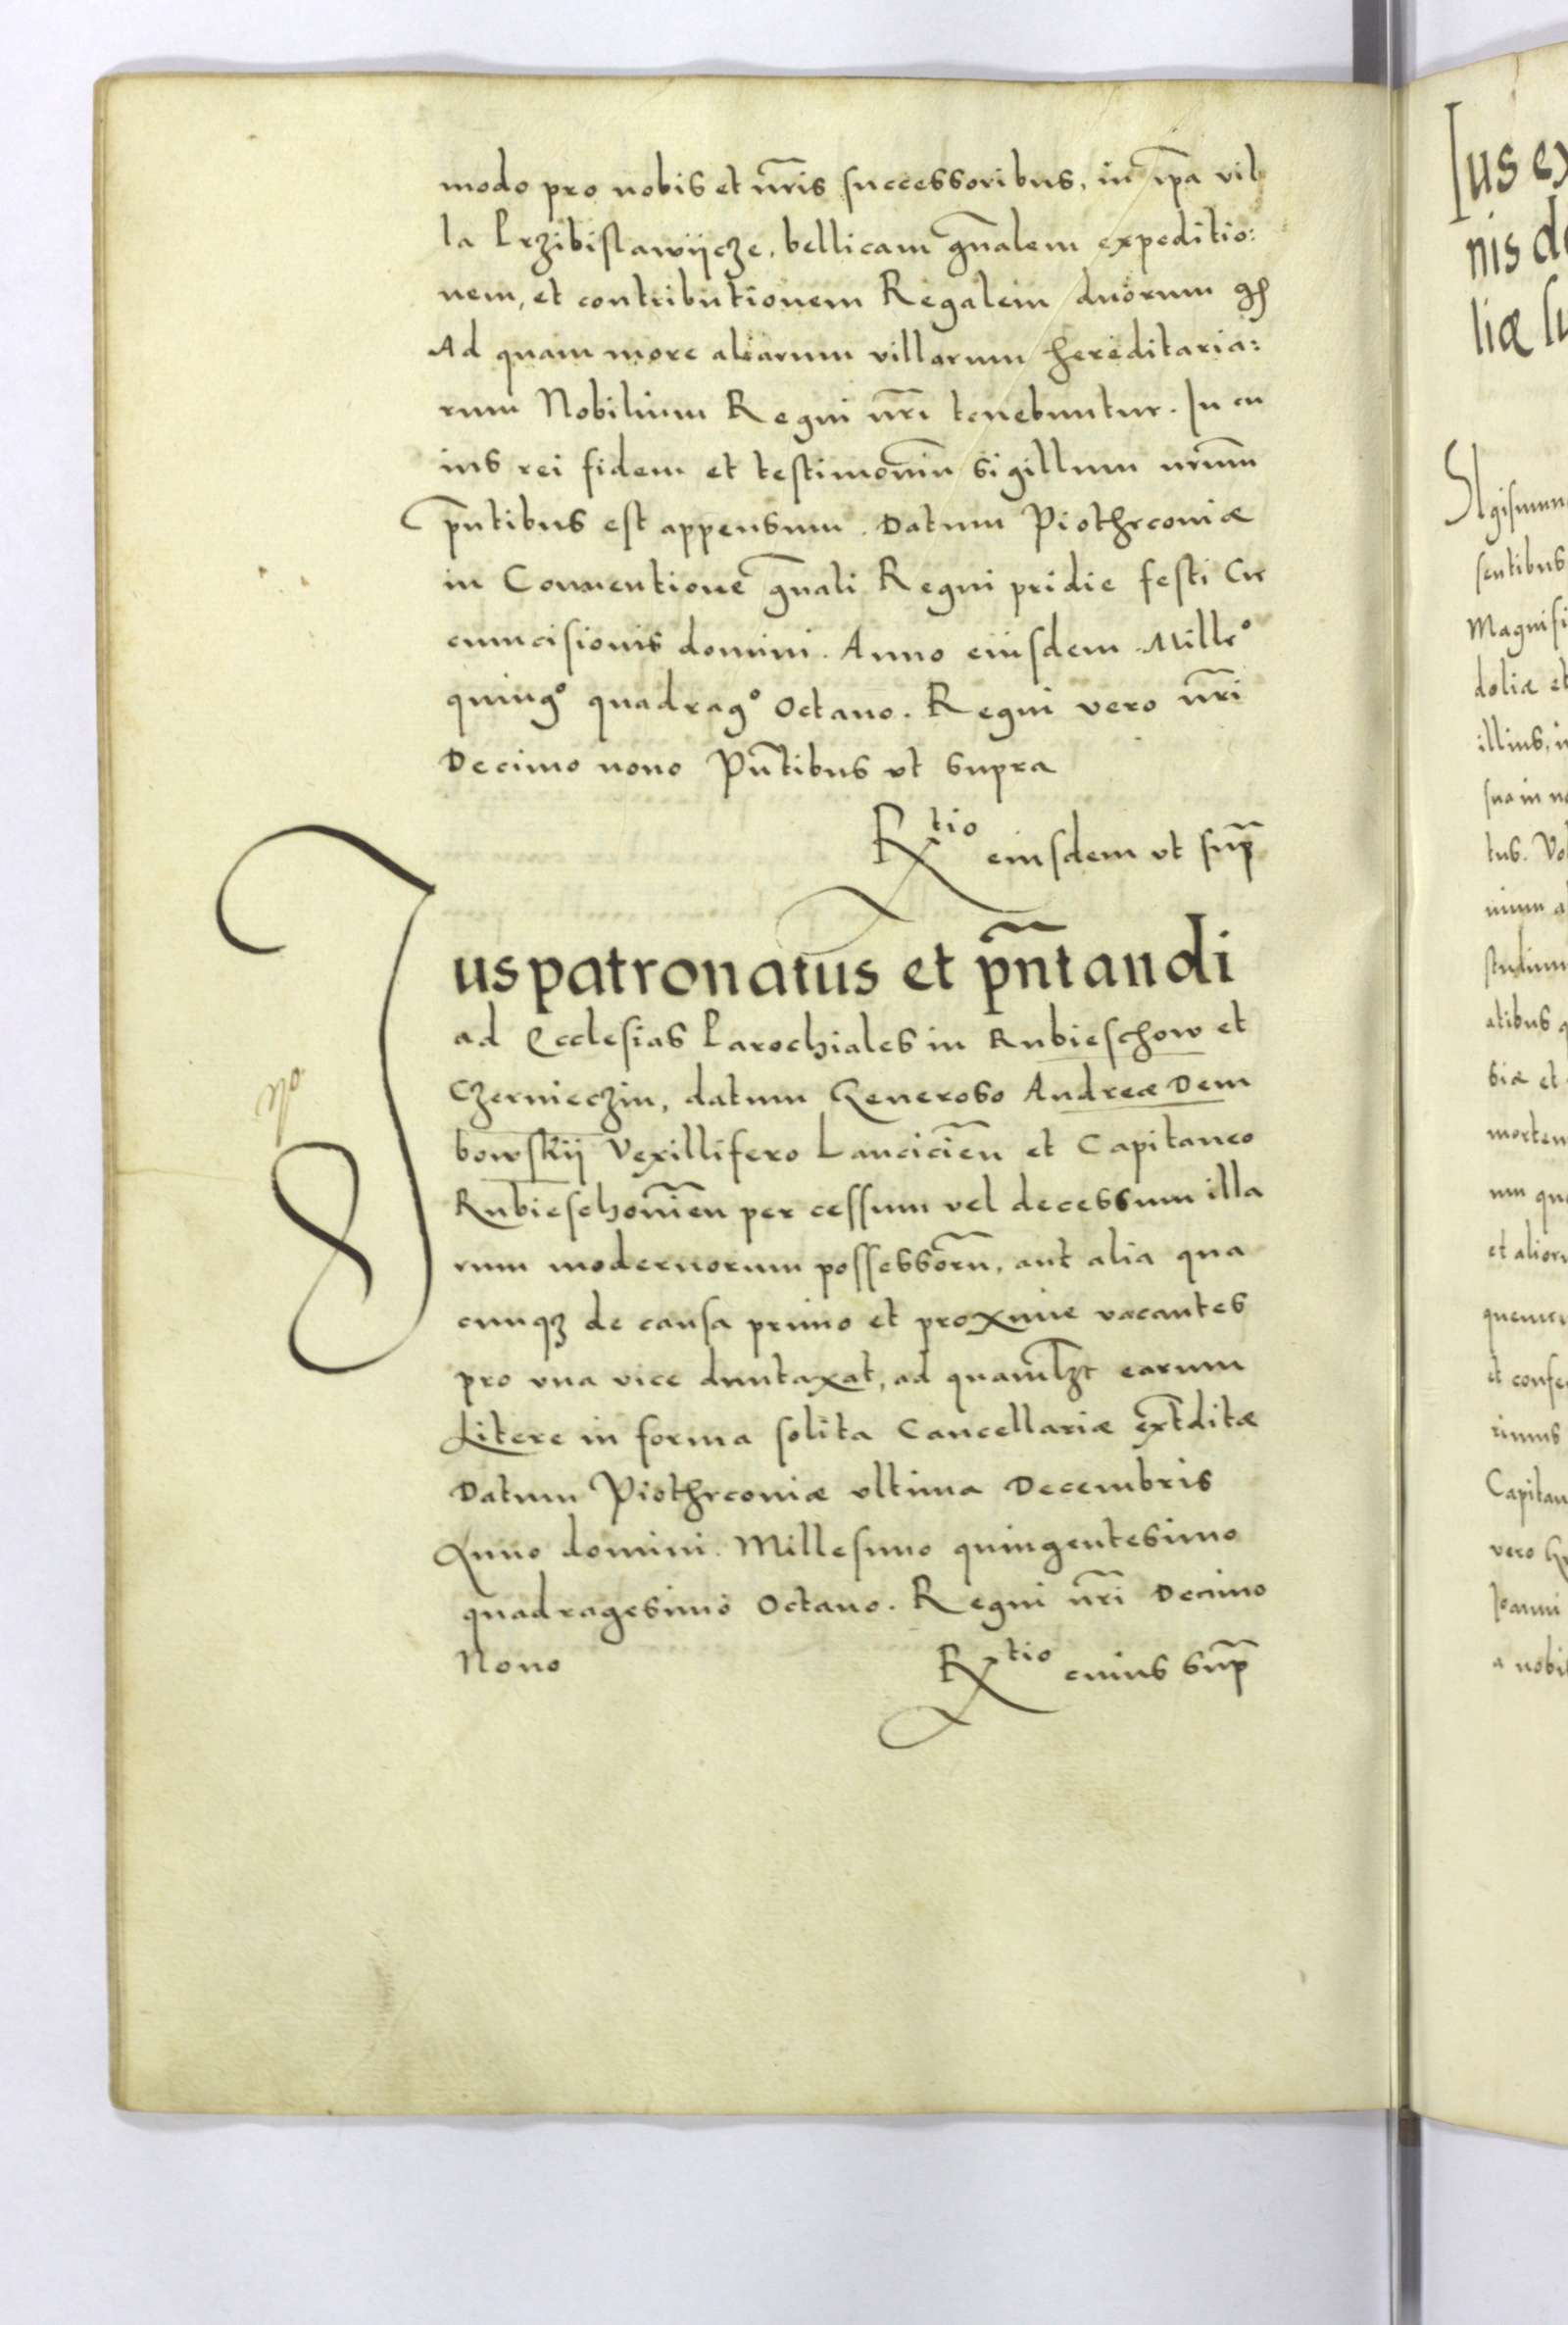 modo pro nobis et nr̄is successoribus, in ip̄a vil
la Przibislawijcze, bellicam gn̄alem expeditio:
nem, et contributionem Regalem duorum gſ
Ad quam more aliarum villarum hereditaria:
rum Nobilium Regni nr̄i tenebuntur. In cu
ius rei fidem et testimoniū sigillum nrūm
pn̄tibus est appensum. Datum Piothrconiæ
in Conuentione gn̄ali Regni pridie festi Cir
cumcisionis domini. Anno eiusdem Mille°
quing° quadrag° Octauo. Regni vero nr̄i
Decimo nono Pn̄tibus vt supra
Rtio eiusdem vt sup̄
Juspatronatus et pn̄tandi
ad Ecclesias Parochiales in Rubieschow et
Czernieczin, datum Generoso Andreæ Dem
bowskij Vexillifero Lancicień et Capitaneo
Rubieschouień per cessum vel decessum illa
rum modernorum possessorū, aut alia qua
cunqȝ de causa primo et proxime vacantes
pro vna vice duntaxat, ad quamlȝt earum
Litere in forma solita Cancellariæ extditæ
Datum Piothrconiæ vltima Decembris
Anno domini. Millesimo quingentesimo
quadragesimo Octauo. Regni nr̄i Decimo
Nono Rtio cuius sup̄
Ius ex
nis de
liæ
Sigismun
sentibus
Magnifi
doliæ et
illius, in
sua in no
tus. Vo
nium a
studium
atibus q
siæ et
mortem
um qua
et alior
quemcu
et confe
rimus
Capitan
vero
Ioanni
a nobis